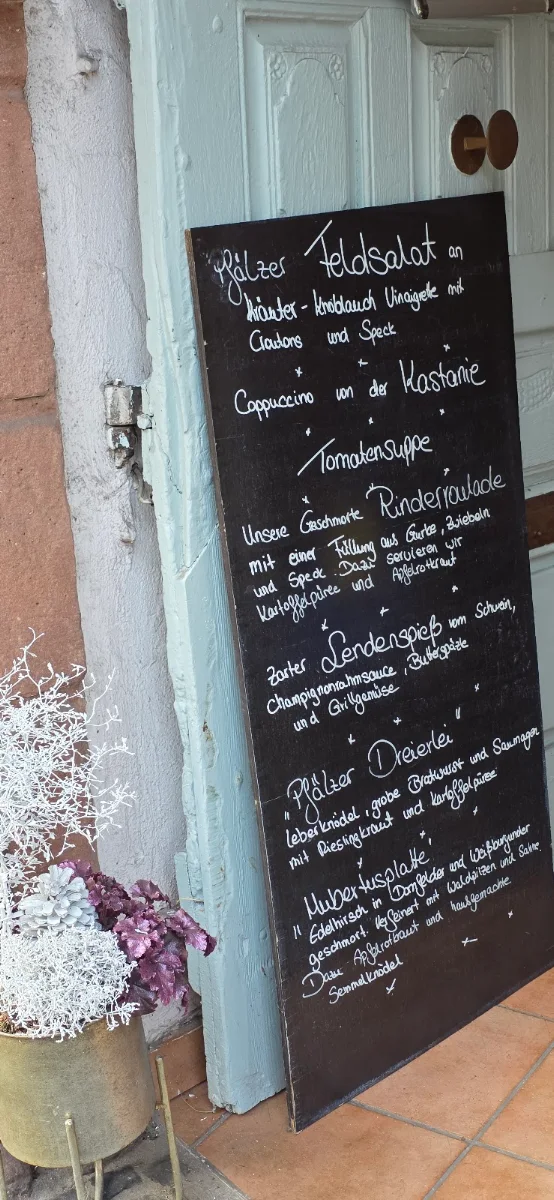 Pfälzer Feldsalat an
Kräuter-Knoblauch Vinaigrette mit
Croutons und Speck
Cappuccino von der Kastanie
Tomatensuppe
Unsere Geschmorte Rinderroulade
mit einer Füllung aus Gurke, Zwiebeln
und Speck. Dazu servieren wir
Kartoffelpüree und Apfelrotkraut
Zarter Lendenspieß vom Schwein,
Champignonrahmsauce, Butterspätzle
und Grillgemüse
"Pfälzer Dreierlei"
Leberknödel, grobe Bratwurst und Saumagen
mit Rieslingkraut und Kartoffelpüree
"Hubertusplatte"
Edelhirsch in Dornfelder und Weißburgunder
geschmort verfeinert mit Waldpilzen und Sahne
Dazu Apfelrotkraut und hausgemachte
Semmelknödel